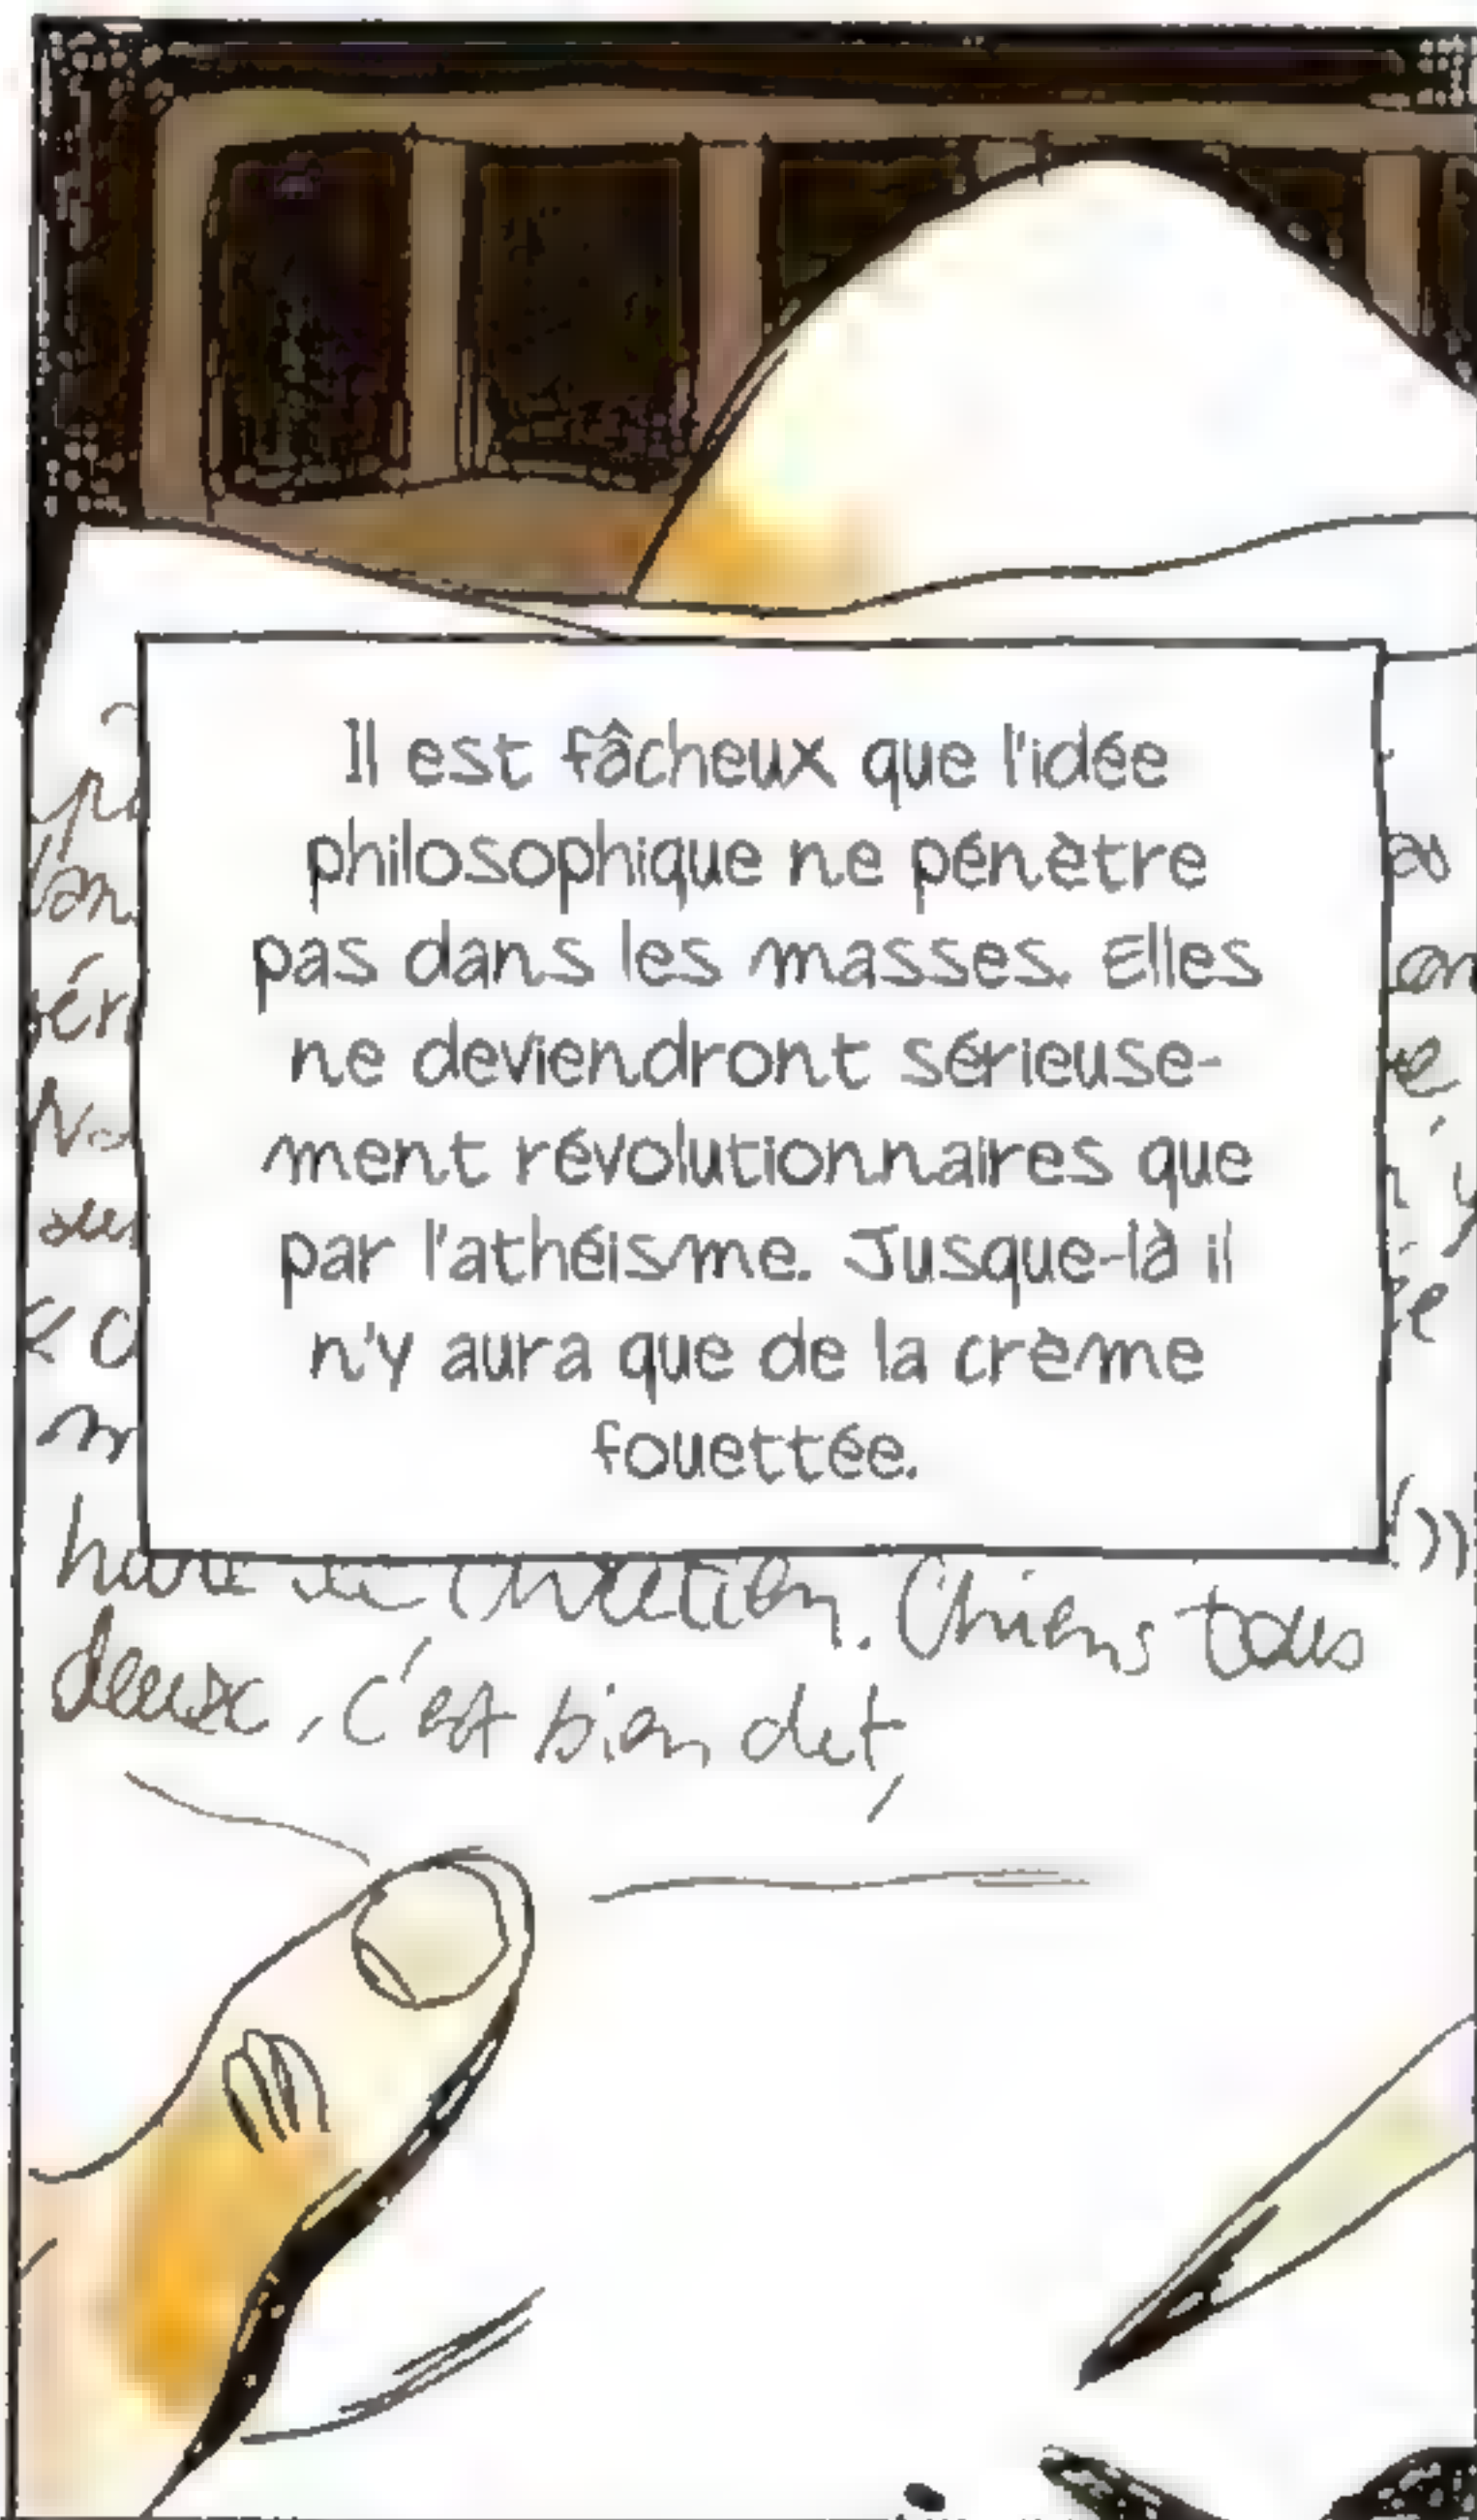 Il est fâcheux que l'idée
philosophique ne pénètre
pas dans les masses. Elles
ne deviendront sérieuse-
ment révolutionnaires que
par l'athéisme. Jusque-là il
n'y aura que de la crème
fouettée.
Chiens tous
deux, c'est bien dit,